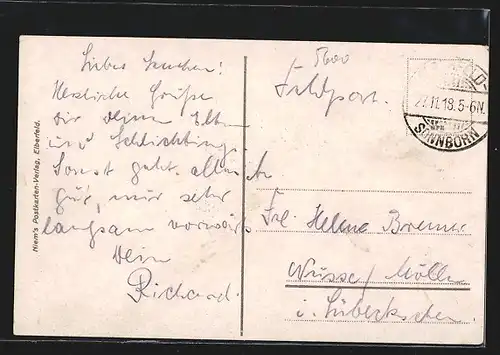 Lieber Kuchen!
Herzliche Grüße
Dir Deinen Eltern
und Schlichting.
Sonst geht alles
gut, nur sehr
langsam vorwärts
Dein
Richard.
Niem's Postkarten-Verlag, Elberfeld.
Feldpost.
27.11.18.5-6N.
SONNBORN
An
Frl. Helene Bremer
Nusse / Mölln
i. Lübeckschen.